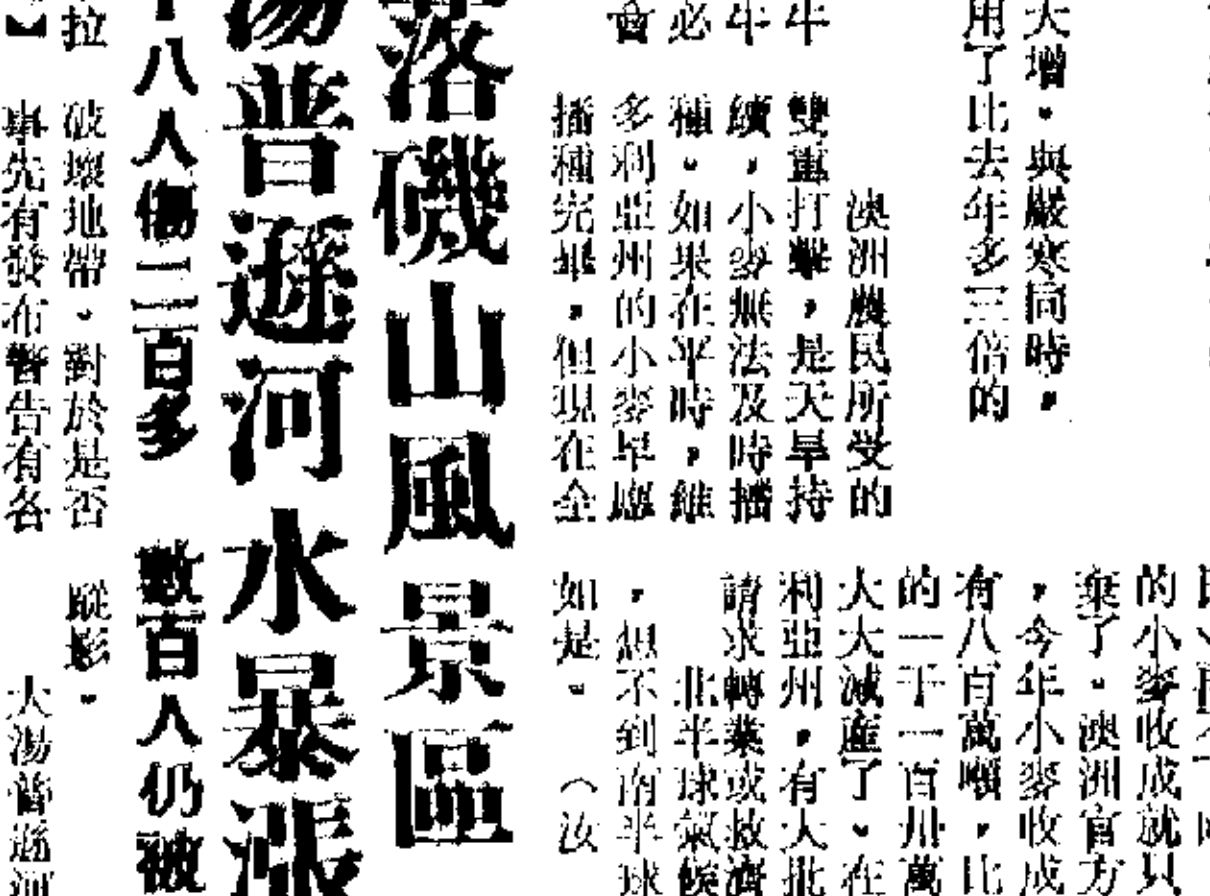 大增。與嚴寒同時，
用了比去年多三倍的
澳洲農民所受的
牛 雙重打擊，是天旱持
牛 續，小麥無法及時播
必 種。如果在平時，維
多利亞州的小麥早應
播種完畢，但現在全
的小麥收成就只
棄了。澳洲官方
，今年小麥收成
有八百萬噸，比
的一千一百卅萬
大大減產了。在
利亞州，有大批
請求轉業或救濟
北半球氣候
，想不到南半球
如是。 （汝
落磯山風景區
湯普遜河水暴漲
十八人傷二百多 數百人仍被
拉 破壞地帶。對於是否 蹤影。
】 事先有發布警告有各 大湯普遜河